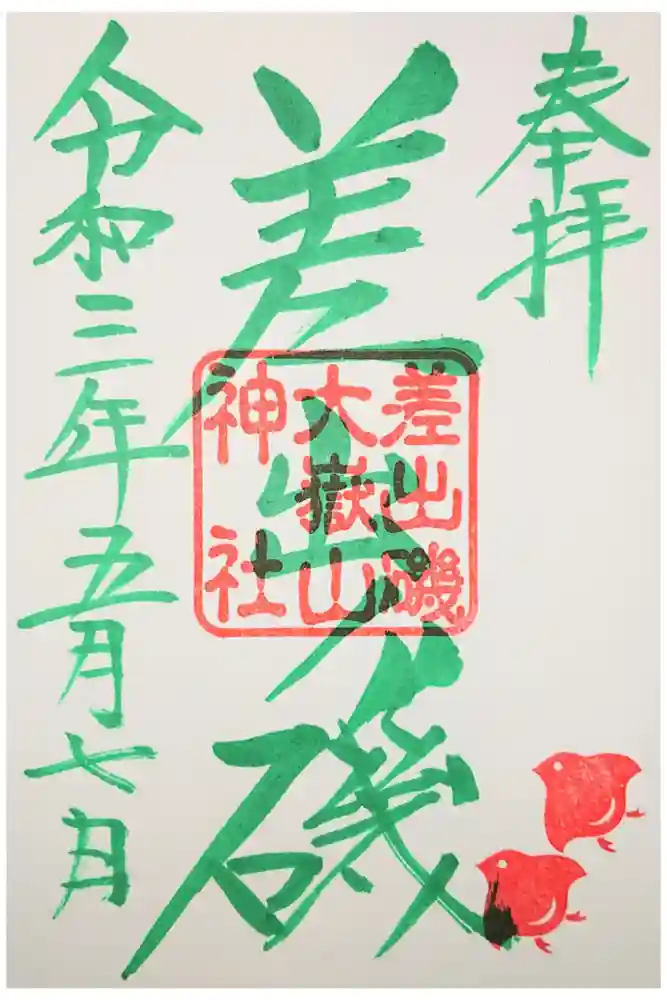 奉拝
差出ノ磯
差出磯
大嶽山
神社
令和三年五月七日